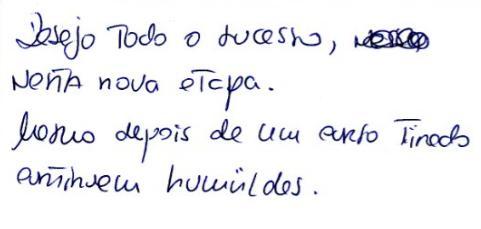 Desejo Todo o sucesso,
nesta nova etapa.
Mesmo depois de um curso Tirado
continuem humildes.